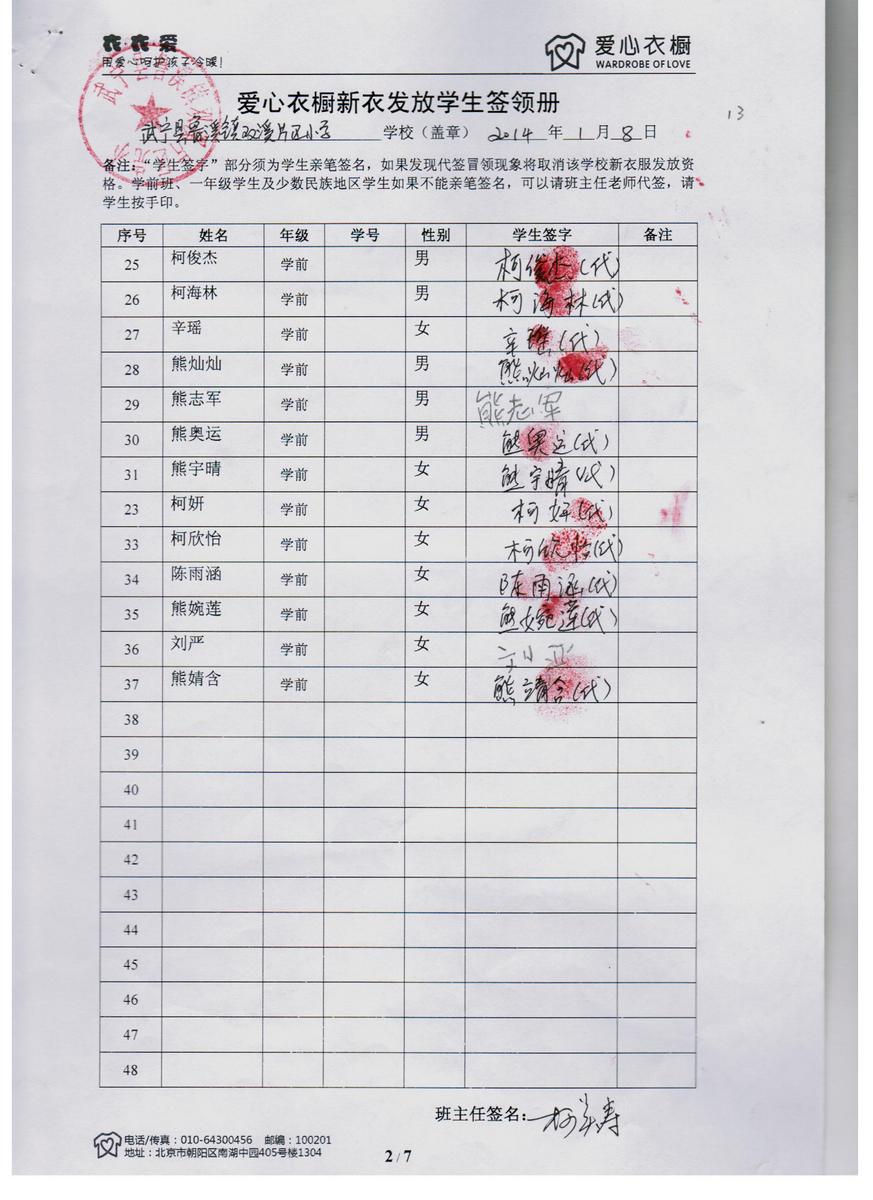 衣·衣·爱
用爱心呵护孩子冷暖!
爱心衣橱
WARDROBE OF LOVE
13
爱心衣橱新衣发放学生签领册
武宁县鲁溪镇双溪片区小学 学校（盖章） 2014 年 1 月 8 日
备注：“学生签字”部分须为学生亲笔签名，如果发现代签冒领现象将取消该学校新衣服发放资
格。学前班、一年级学生及少数民族地区学生如果不能亲笔签名，可以请班主任老师代签，请
学生按手印。
序号 姓名 年级 学号 性别 学生签字 备注
25 柯俊杰 学前 男 柯俊杰(代)
26 柯海林 学前 男 柯海林(代)
27 辛瑶 学前 女 辛瑶(代)
28 熊灿灿 学前 男 熊灿灿(代)
29 熊志军 学前 男 熊志军
30 熊奥运 学前 男 熊奥运(代)
31 熊宇晴 学前 女 熊宇晴(代)
23 柯妍 学前 女 柯妍(代)
33 柯欣怡 学前 女 柯欣怡(代)
34 陈雨涵 学前 女 陈雨涵(代)
35 熊婉莲 学前 女 熊婉莲(代)
36 刘严 学前 女
37 熊婧含 学前 女 熊靖含(代)
38
39
40
41
42
43
44
45
46
47
48
班主任签名：
电话/传真：010-64300456 邮编：100201
地址：北京市朝阳区南湖中园405号楼1304
2 / 7